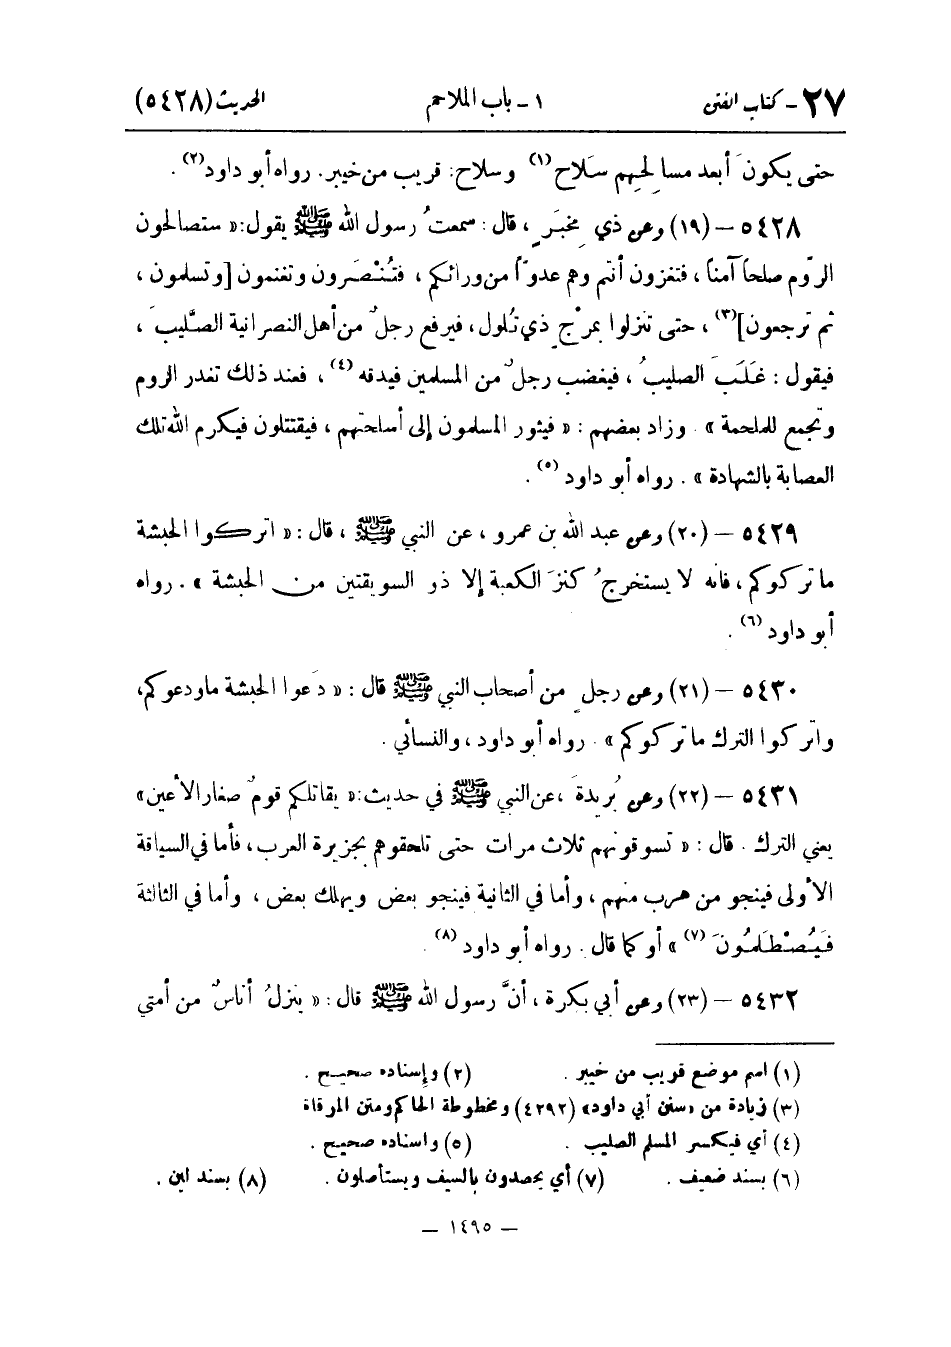 ٢٧ - كتاب الفتن ١ - باب الملاحم الحديث (٥٤٢٨)
حتى يكونَ أبعد مسالِحِهم سَلاح(١) وسلاح: قريب من خيبر. رواه أبو داود(٢).
٥٤٢٨ – (١٩) وعن ذي مِخبَرٍ، قال: سمعتُ رسول الله ﷺ يقول: « ستصالحون
الرّوم صلحاً آمناً، فتغزون أنتم وهم عدوّاً من ورائكم، فتُنْصَرون وتغنمون [وتسلمون،
ثم ترجعون](٣)، حتى تنزلوا بمرْجٍ ذي تُلول، فيرفع رجلٌ من أهل النصرانية الصَّليبَ،
فيقول: غَلَبَ الصليبُ، فيغضب رجلٌ من المسلمين فيدقه(٤)، فعند ذلك تغدر الروم
وتجمع للملحمة ». وزاد بعضهم: « فيثور المسلمون إلى أسلحتهم، فيقتتلون فيكرم الله تلك
العصابة بالشهادة ». رواه أبو داود(٥).
٥٤٢٩ – (٢٠) وعن عبد الله بن عمرو، عن النبي ﷺ، قال: « اتركوا الحبشة
ما تركوكم، فانه لا يستخرجُ كنزَ الكعبة إلا ذو السويقتين من الحبشة ». رواه
أبو داود(٦).
٥٤٣٠ – (٢١) وعن رجلٍ من أصحاب النبي ﷺ قال: « دَعوا الحبشة ما ودعوكم،
واتركوا الترك ما تركوكم ». رواه أبو داود، والنسائي.
٥٤٣١ – (٢٢) وعن بُريدةَ، عن النبي ﷺ في حديث: « يقاتلكم قومٌ صغار الأعين »
يعني الترك. قال: « تسوقونهم ثلاث مرات حتى تلحقوهم بجزيرة العرب، فأما في السياقة
الأولى فينجو من هرب منهم، وأما في الثانية فينجو بعض ويهلك بعض، وأما في الثالثة
فيُصْطَلمُونَ(٧) » أو كما قال. رواه أبو داود(٨).
٥٤٣٢ – (٢٣) وعن أبي بكرة، أنَّ رسول الله ﷺ قال: « ينزلُ أناسٌ من أمتي
(١) اسم موضع قريب من خيبر. (٢) وإسناده صحيح.
(٣) زيادة من «سنن أبي داود» (٤٢٩٢) ومخطوطة الحاكم ومتن المرقاة
(٤) أي فيكسر المسلم الصليب. (٥) واسناده صحيح.
(٦) بسند ضعيف. (٧) أي يحصدون بالسيف ويستأصلون. (٨) بسند لين.
– ١٤٩٥ –